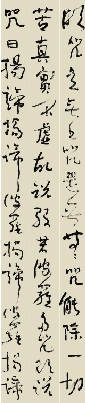 明咒是無上咒是無等等咒能除一切
苦真實不虛故說般若波羅蜜多咒即說
咒曰揭諦揭諦波羅揭諦波羅揭諦